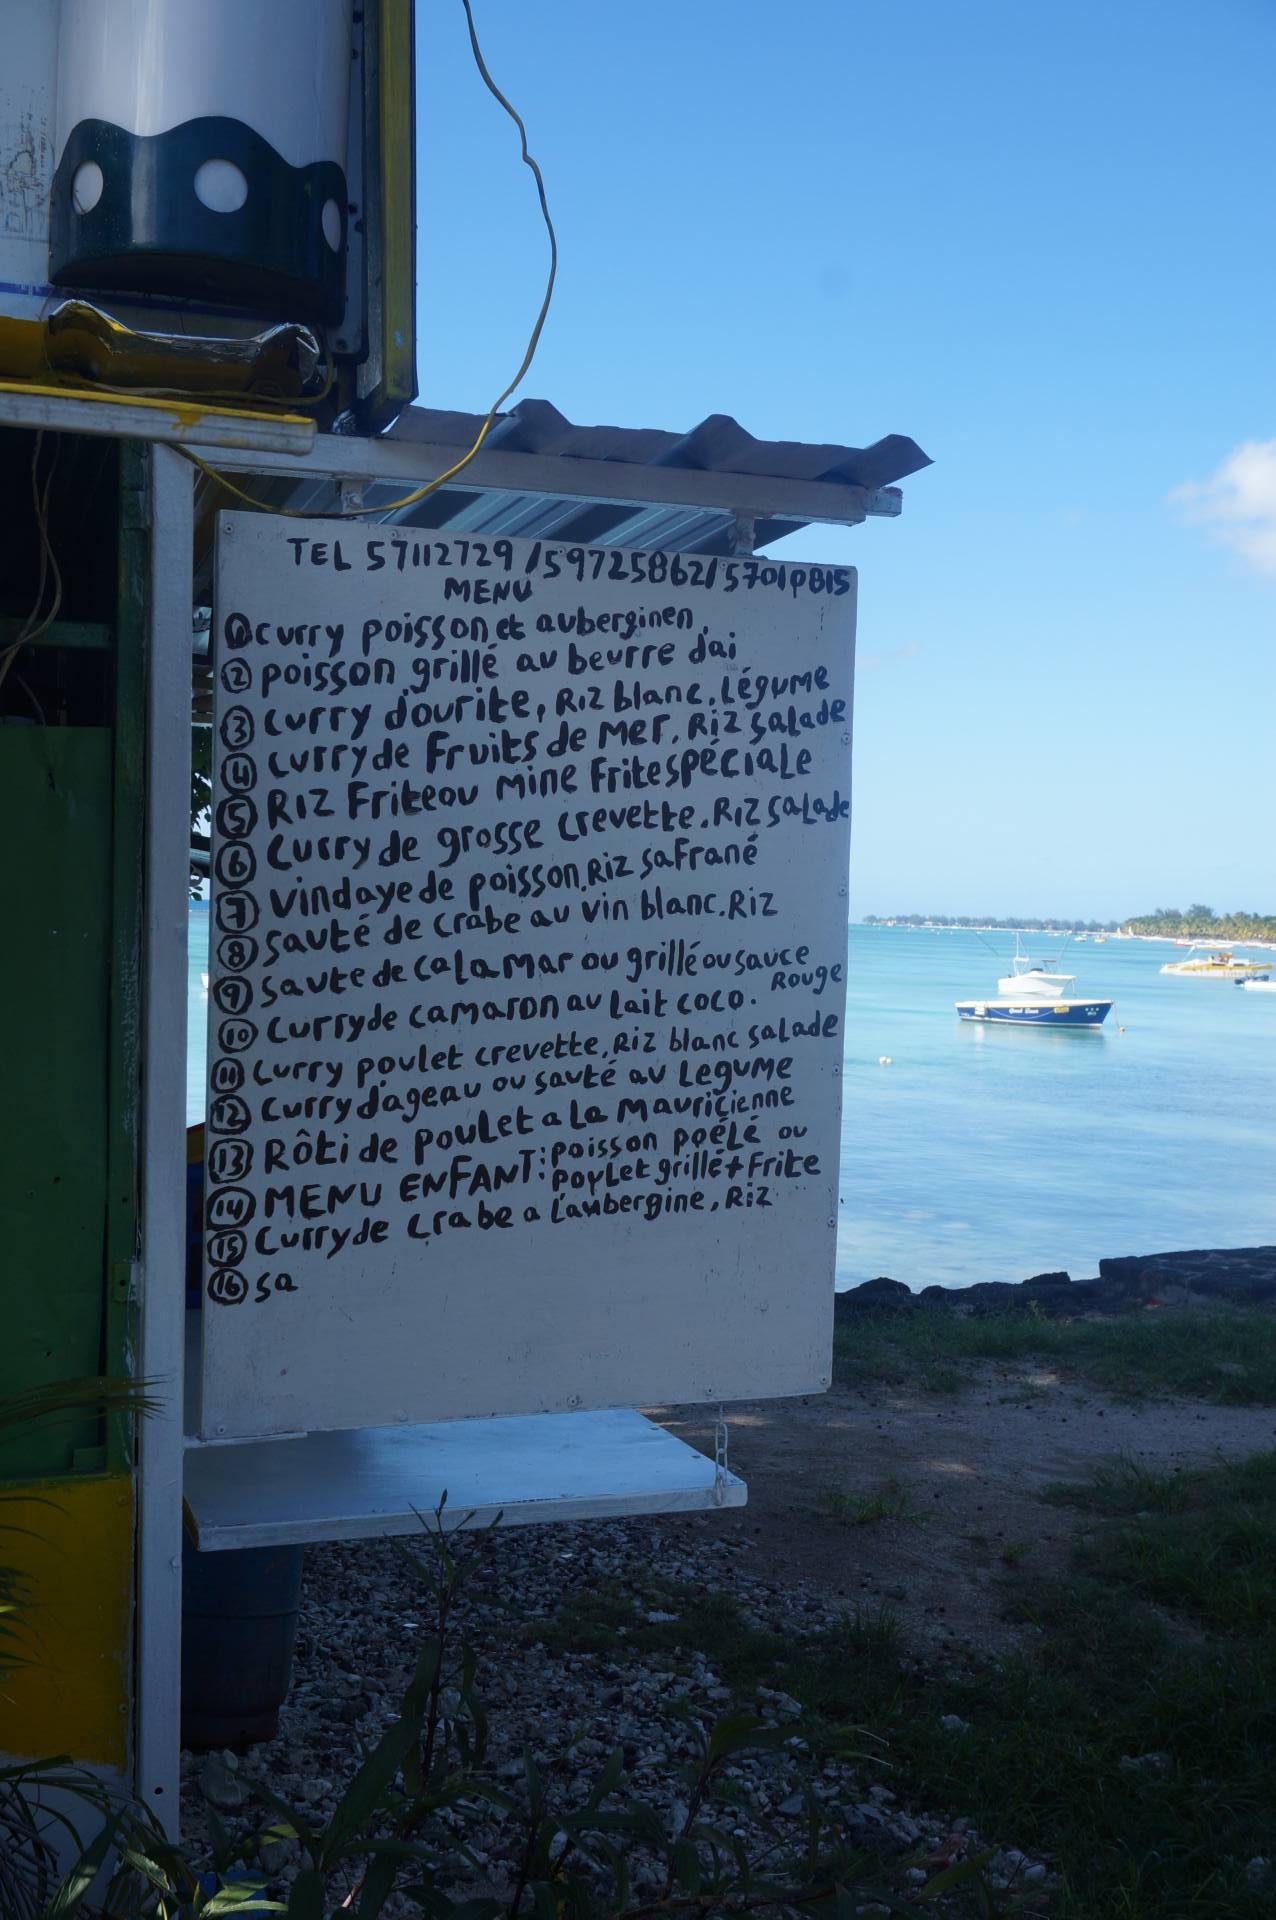 TEL 57112729 /59725862/ 57019815
MENU
1 curry poisson et auberginen.
2 poisson grillé au beurre d'ai
3 curry d'ourite, Riz blanc. Légume
4 curry de Fruits de Mer. Riz salade
5 RIZ Frite ou mine Frite spéciale
6 Curry de grosse crevette. Riz salade
7 vindaye de poisson. Riz safrané
8 sauté de crabe au vin blanc. Riz
9 saute de calamar ou grillé ou sauce
Rouge
10 curry de camaron au lait coco.
11 curry poulet crevette, Riz blanc salade
12 curry d'ageau ou sauté au Legume
13 Rôti de poulet a la Mauricienne
14 MENU ENFANT: poisson poêlé ou
poulet grillé + Frite
15 Curry de crabe a l'aubergine, Riz
16 sa